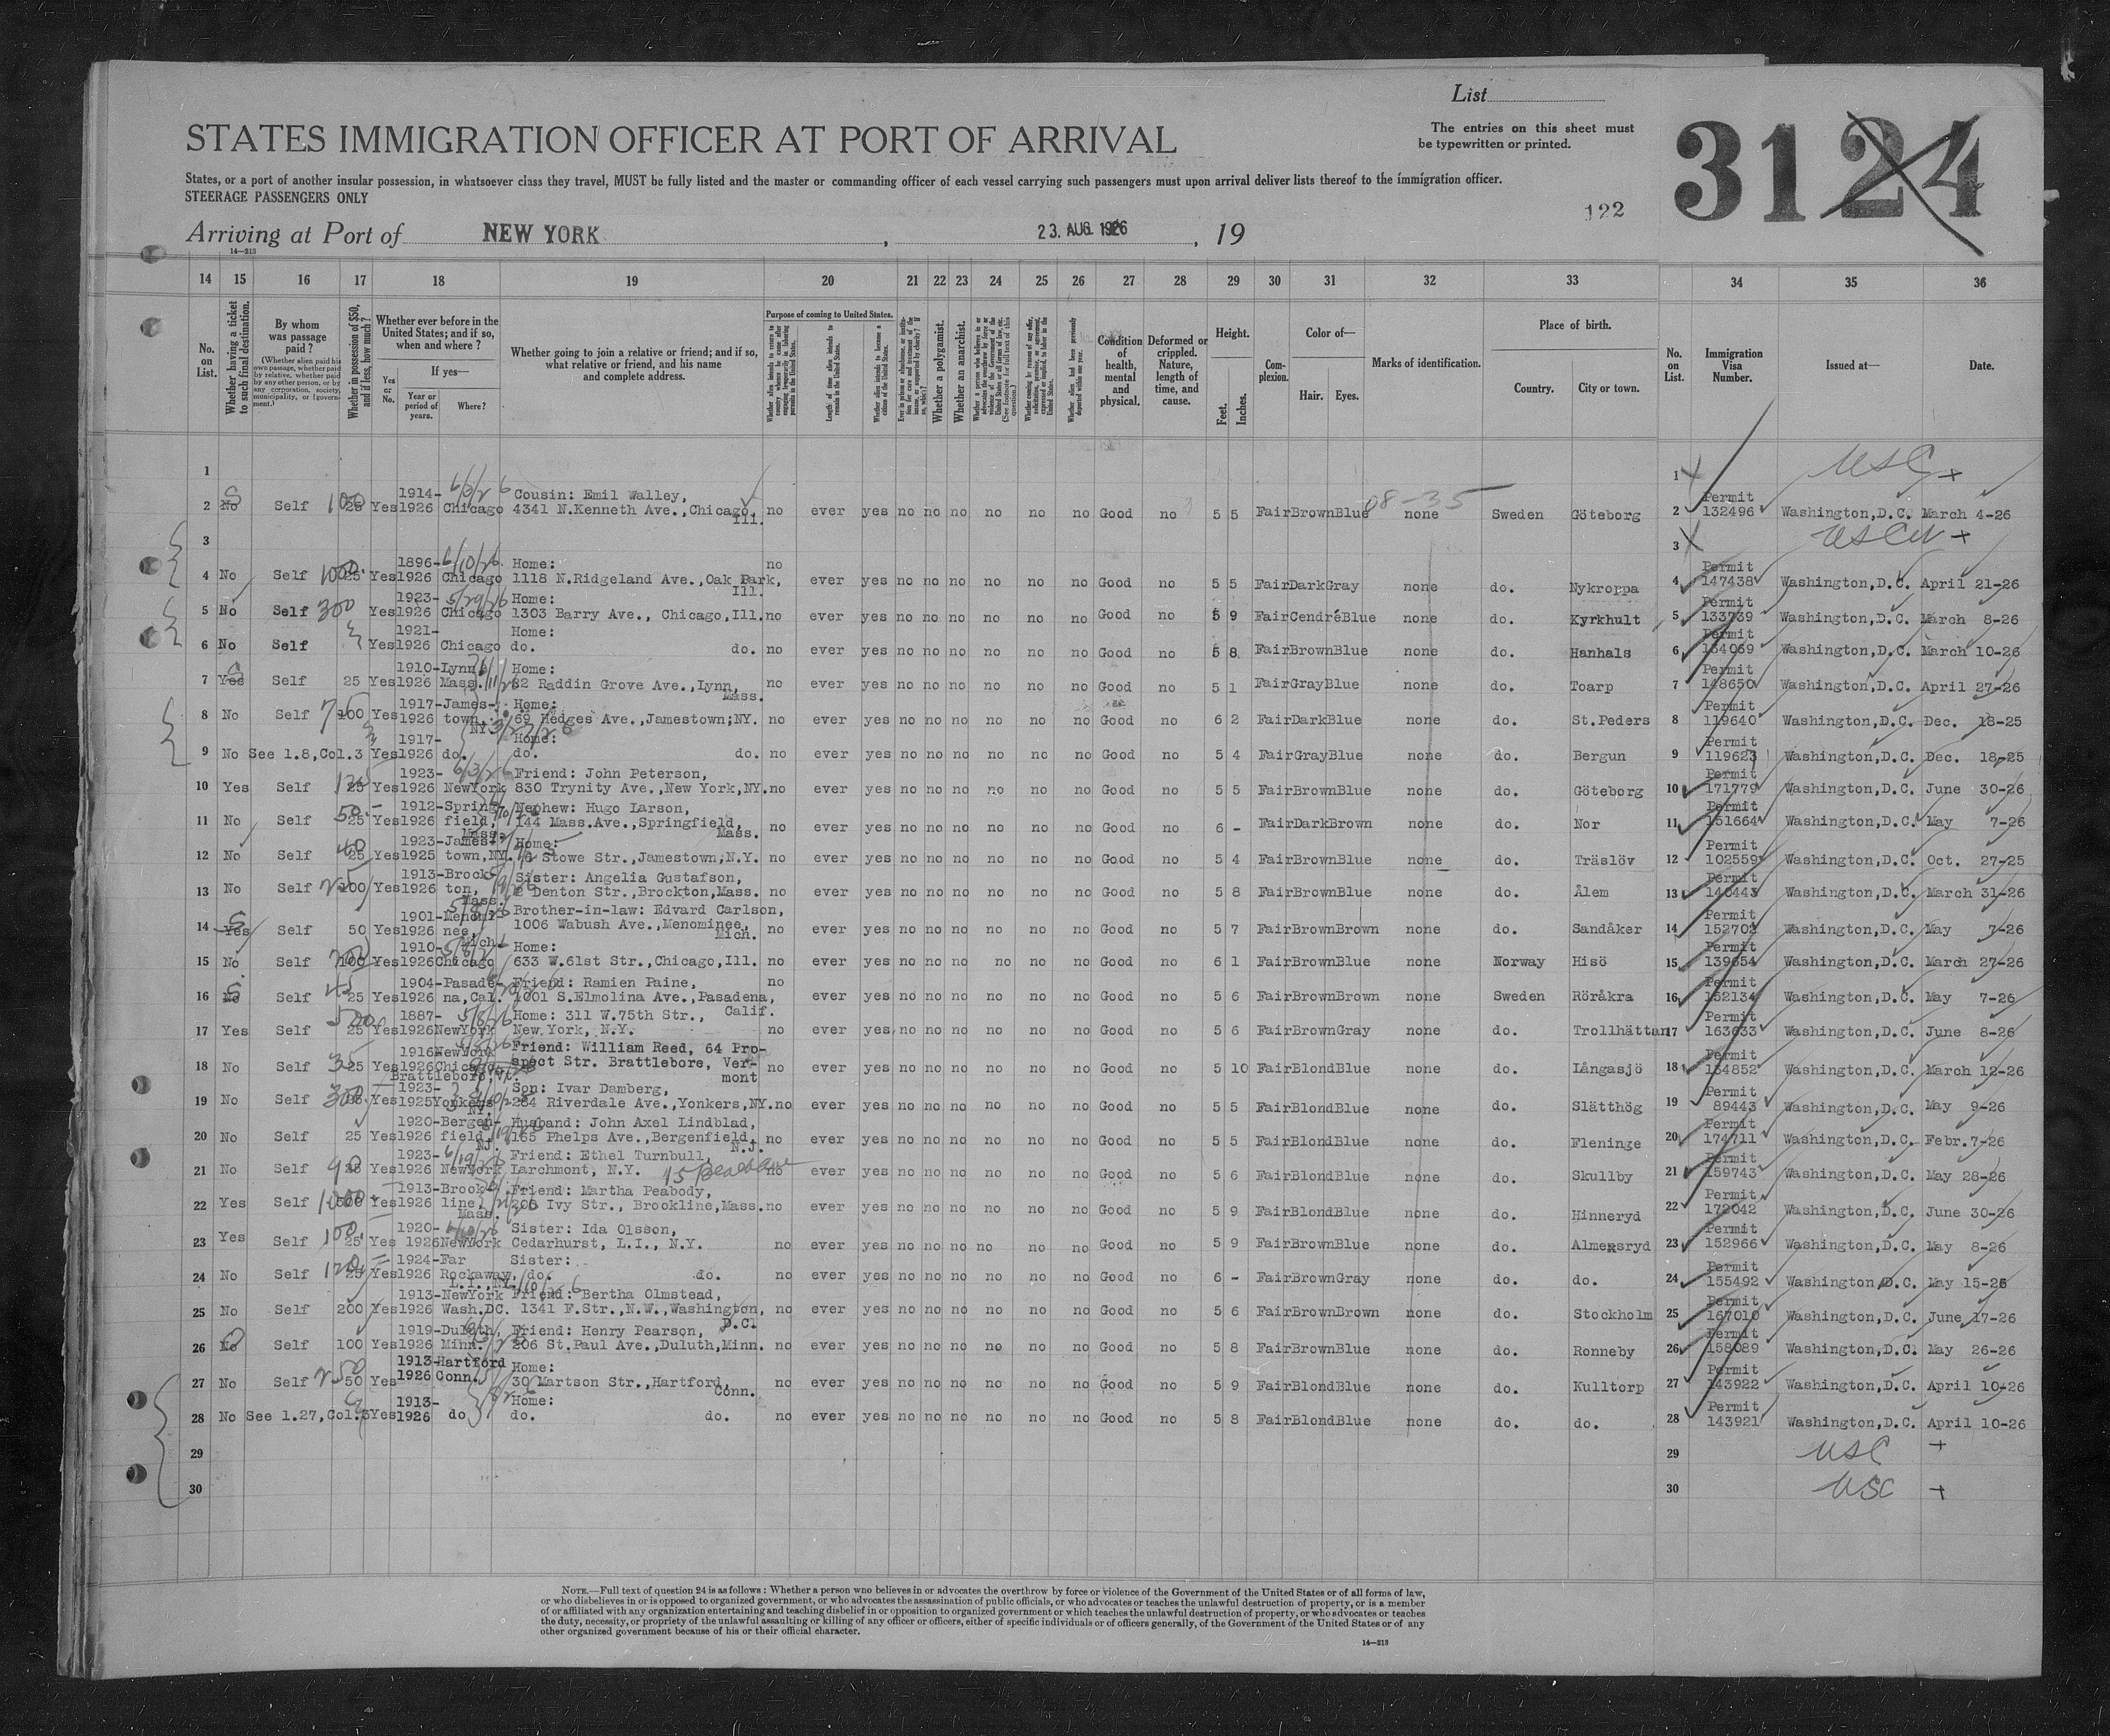 List
STATES IMMIGRATION OFFICER AT PORT OF ARRIVAL
The entries on this sheet must
be typewritten or printed.
3124
States, or a port of another insular possession, in whatsoever class they travel, MUST be fully listed and the master or commanding officer of each vessel carrying such passengers must upon arrival deliver lists thereof to the immigration officer.
STEERAGE PASSENGERS ONLY
122
Arriving at Port of NEW YORK, 23. AUG. 1926, 19
14—213
14 15 16 17 18 19 20 21 22 23 24 25 26 27 28 29 30 31 32 33 34 35 36
No. on List.
Whether having a ticket to such final destination.
By whom was passage paid?
(Whether alien paid his own passage, whether paid by relative, whether paid by any other person, or by any corporation, society, municipality, or government.)
Whether in possession of $50, and if less, how much?
Whether ever before in the United States; and if so, when and where?
Yes or No.
If yes—
Year or period of years.
Where?
Whether going to join a relative or friend; and if so, what relative or friend, and his name and complete address.
Purpose of coming to United States.
Length of time alien intends to remain in the United States.
Whether alien intends to become a citizen of the United States.
Whether a polygamist.
Whether an anarchist.
Condition of health, mental and physical.
Deformed or crippled. Nature, length of time, and cause.
Height.
Feet. Inches.
Complexion.
Color of—
Hair. Eyes.
Marks of identification.
Place of birth.
Country. City or town.
No. on List.
Immigration Visa Number.
Issued at—
Date.
1 1 USC +
1914- 6/3/26 Cousin: Emil Walley, 08-35 Permit
2 No S Self 100 25 Yes 1926 Chicago 4341 N.Kenneth Ave.,Chicago, Ill. no ever yes no no no no no no Good no 5 5 Fair Brown Blue none Sweden Göteborg 2 132496 Washington,D.C. March 4-26
3 3 +
1896- 6/10/26 Home: Permit
4 No Self 25 Yes 1926 Chicago 1118 N.Ridgeland Ave.,Oak Park, Ill. no ever yes no no no no no no Good no 5 5 Fair Dark Gray none do. Nykroppa 4 147438 Washington,D.C. April 21-26
1923- 5/29/26 Home: Permit
5 No Self 300 Yes 1926 Chicago 1303 Barry Ave., Chicago,Ill. no ever yes no no no no no no Good no 5 9 Fair Cendré Blue none do. Kyrkhult 5 133739 Washington,D.C. March 8-26
1921- Home: Permit
6 No Self Yes 1926 Chicago do. do. no ever yes no no no no no no Good no 5 8 Fair Brown Blue none do. Hanhals 6 134059 Washington,D.C. March 10-26
1910-Lynn, Home: Permit
7 Yes S Self 25 Yes 1926 Mass. 82 Raddin Grove Ave.,Lynn, Mass. no ever yes no no no no no no Good no 5 1 Fair Gray Blue none do. Toarp 7 148650 Washington,D.C. April 27-26
1917-James- Home: Permit
8 No Self 75 100 Yes 1926 town, NY. 69 Hedges Ave.,Jamestown,NY. no ever yes no no no no no no Good no 6 2 Fair Dark Blue none do. St.Peders 8 119640 Washington,D.C. Dec. 18-25
1917- Home: Permit
9 No See 1.8,Col.3 Yes 1926 do. do. do. no ever yes no no no no no no Good no 5 4 Fair Gray Blue none do. Bergun 9 119623 Washington,D.C. Dec. 18-25
1923- 6/3/26 Friend: John Peterson, Permit
10 Yes Self 25 Yes 1926 NewYork 830 Trynity Ave.,New York,NY. no ever yes no no no no no no Good no 5 5 Fair Brown Blue none do. Göteborg 10 171779 Washington,D.C. June 30-26
1912-Spring Nephew: Hugo Larson, Permit
11 No Self 50.- 25 Yes 1926 field, Mass. 144 Mass.Ave.,Springfield, Mass. no ever yes no no no no no no Good no 6 - Fair Dark Brown none do. Nor 11 151664 Washington,D.C. May 7-26
1923-James- Home: Permit
12 No Self 40 25 Yes 1925 town,NY. 16 Stowe Str.,Jamestown,N.Y. no ever yes no no no no no no Good no 5 4 Fair Brown Blue none do. Träslöv 12 102559 Washington,D.C. Oct. 27-25
1913-Brock- Sister: Angelia Gustafson, Permit
13 No Self 100 Yes 1926 ton, Mass. 2 Denton Str.,Brockton,Mass. no ever yes no no no no no no Good no 5 8 Fair Brown Blue none do. Ålem 13 140443 Washington,D.C. March 31-26
1901-Menomi- Brother-in-law: Edvard Carlson, Permit
14 Yes S Self 50 Yes 1926 nee, Mich. 1006 Wabush Ave.,Menominee, Mich. no ever yes no no no no no no Good no 5 7 Fair Brown Brown none do. Sandåker 14 152702 Washington,D.C. May 7-26
1910- Home: Permit
15 No Self 100 Yes 1926 Chicago 633 W.61st Str.,Chicago,Ill. no ever yes no no no no no no Good no 6 1 Fair Brown Blue none Norway Hisö 15 139654 Washington,D.C. March 27-26
1904-Pasade- Friend: Ramien Paine, Permit
16 No S Self 45 25 Yes 1926 na,Cal. 1001 S.Elmolina Ave.,Pasadena, Calif. no ever yes no no no no no no Good no 5 6 Fair Brown Brown none Sweden Röråkra 16 152134 Washington,D.C. May 7-26
1887- 5/8/26 Home: 311 W.75th Str., Permit
17 Yes Self 500 25 Yes 1926 NewYork New York, N.Y. no ever yes no no no no no no Good no 5 6 Fair Brown Gray none do. Trollhättan 17 163633 Washington,D.C. June 8-26
1916 NewYork Friend: William Reed, 64 Pro- Permit
18 No Self 35 25 Yes 1926 Chicago Brattleboro,Vt. spect Str. Brattlebore, Ver- mont no ever yes no no no no no no Good no 5 10 Fair Blond Blue none do. Långasjö 18 134852 Washington,D.C. March 12-26
1923- Son: Ivar Damberg, Permit
19 No Self 300 Yes 1925 Yonkers NY. 284 Riverdale Ave.,Yonkers,NY. no ever yes no no no no no no Good no 5 5 Fair Blond Blue none do. Slätthög 19 89443 Washington,D.C. May 9-26
1920-Bergen- Husband: John Axel Lindblad, Permit
20 No Self 25 Yes 1926 field, NJ. 165 Phelps Ave.,Bergenfield, N.J. no ever yes no no no no no no Good no 5 5 Fair Blond Blue none do. Fleninge 20 174711 Washington,D.C. Febr.7-26
1923- 6/19/26 Friend: Ethel Turnbull, Permit
21 No Self 90 25 Yes 1926 NewYork Larchmont, N.Y. no ever yes no no no no no no Good no 5 6 Fair Blond Blue none do. Skullby 21 159743 Washington,D.C. May 28-26
1913-Brook- Friend: Martha Peabody, Permit
22 Yes Self 1000.- 500 Yes 1926 line, Mass. 206 Ivy Str., Brookline,Mass. no ever yes no no no no no no Good no 5 9 Fair Blond Blue none do. Hinneryd 22 172042 Washington,D.C. June 30-26
1920- 6/10/26 Sister: Ida Olsson, Permit
23 Yes Self 100.- 25 Yes 1926 NewYork Cedarhurst, L.I., N.Y. no ever yes no no no no no no Good no 5 9 Fair Brown Blue none do. Almeksryd 23 152966 Washington,D.C. May 8-26
1924-Far Sister: Permit
24 No Self 120 25 Yes 1926 Rockaway, L.I.,NY. do. do. no ever yes no no no no no no Good no 6 - Fair Brown Gray none do. do. 24 155492 Washington,D.C. May 15-26
1913-NewYork Friend: Bertha Olmstead, Permit
25 No Self 200 Yes 1926 Wash.DC. 1341 F.Str.,N.W.,Washington, D.C. no ever yes no no no no no no Good no 5 6 Fair Brown Brown none do. Stockholm 25 167010 Washington,D.C. June 17-26
1919-Duluth, Friend: Henry Pearson, Permit
26 No Self 100 Yes 1926 Minn. 206 St.Paul Ave.,Duluth,Minn. no ever yes no no no no no no Good no 5 8 Fair Brown Blue none do. Ronneby 26 158089 Washington,D.C. May 26-26
1913-Hartford Home: Permit
27 No Self 250 50 Yes 1926 Conn. 30 Martson Str.,Hartford, Conn. no ever yes no no no no no no Good no 5 9 Fair Blond Blue none do. Kulltorp 27 143922 Washington,D.C. April 10-26
1913- Home: Permit
28 No See 1.27,Col.3 Yes 1926 do do. do. no ever yes no no no no no no Good no 5 8 Fair Blond Blue none do. do. 28 143921 Washington,D.C. April 10-26
29 29 USC +
30 30 USC +
NOTE.—Full text of question 24 is as follows: Whether a person who believes in or advocates the overthrow by force or violence of the Government of the United States or of all forms of law,
or who disbelieves in or is opposed to organized government, or who advocates the assassination of public officials, or who advocates or teaches the unlawful destruction of property, or is a member
of or affiliated with any organization entertaining and teaching disbelief in or opposition to organized government or which teaches the unlawful destruction of property, or who advocates or teaches
the duty, necessity, or propriety of the unlawful assaulting or killing of any officer or officers, either of specific individuals or of officers generally, of the Government of the United States or of any
other organized government because of his or their official character.
14—213